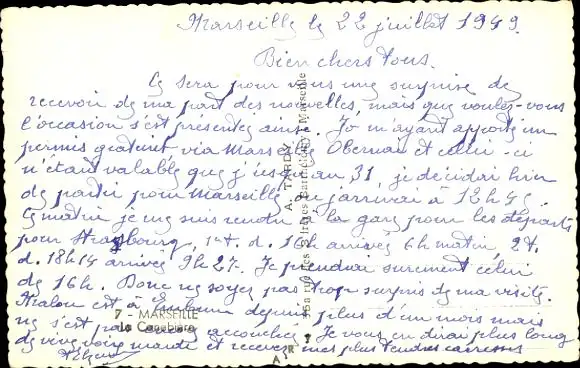 Marseille le 22 juillet 1949.
Bien chers tous.
Ce sera pour vous une surprise de
recevoir de ma part des nouvelles, mais que voulez-vous
l'occasion s'est présentée ainsi. Jo m'ayant apporté un
permis gratuit via Marseille Obernai et celui-ci
n'étant valable que jusqu'au 31 je décidai hier
de partir pour Marseille où j'arrivai à 12h45
Ce matin je me suis rendu à la gare pour les départs
pour Strasbourg, 1er t. d. 16h arrivée 6h matin 2 t.
d. 18h14 arrivée 9h27. Je prendrai surement celui
de 16h. Donc ne soyez pas trop surpris de ma visite.
est à Embrun depuis plus d'un mois mais
ne s'est pas encore accouchée. Je vous en dirai plus long
de vive voix mardi et recevez mes plus tendres caresses
7 - MARSEILLE
La Canebière
A. TARDY
Marseille
A R